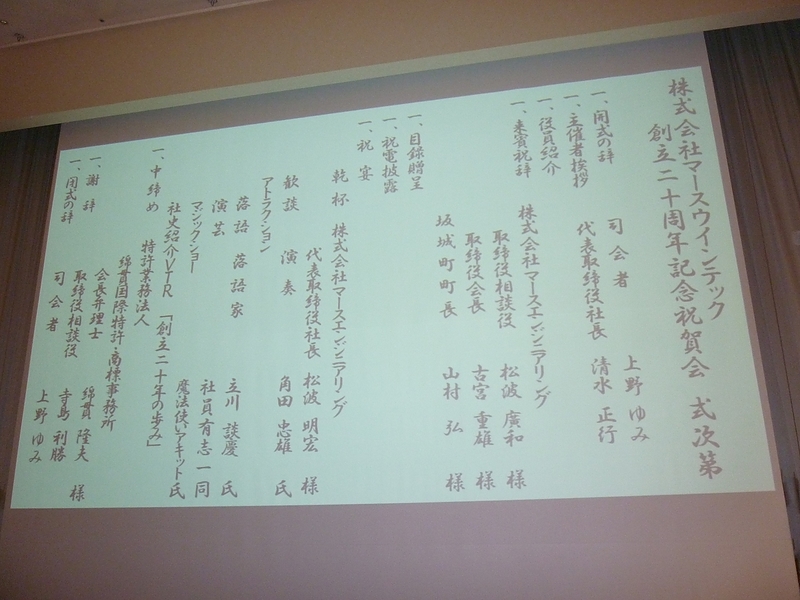 株式会社マースウインテック
創立二十周年記念祝賀会 式次第
一、開式の辞 司会者 上野 ゆみ
一、主催者挨拶 代表取締役社長 清水 正行
一、役員紹介
一、来賓祝辞 株式会社マースエンジニアリング
取締役相談役 松波 廣和 様
取締役会長 古宮 重雄 様
坂城町町長 山村 弘 様
一、目録贈呈
一、祝電披露
一、祝宴
乾杯 株式会社マースエンジニアリング
代表取締役社長 松波 明宏 様
歓談 演奏 角田 忠雄 氏
アトラクション
落語 落語家 立川 談慶 氏
演芸 社員有志一同
マジックショー 魔法使いアキット 氏
社史紹介VTR 「創立二十年の歩み」
一、中締め 特許業務法人
綿貫国際特許・商標事務所
会長弁理士 綿貫 隆夫 様
一、謝辞 取締役相談役 寺島 利勝
一、閉式の辞 司会者 上野 ゆみ